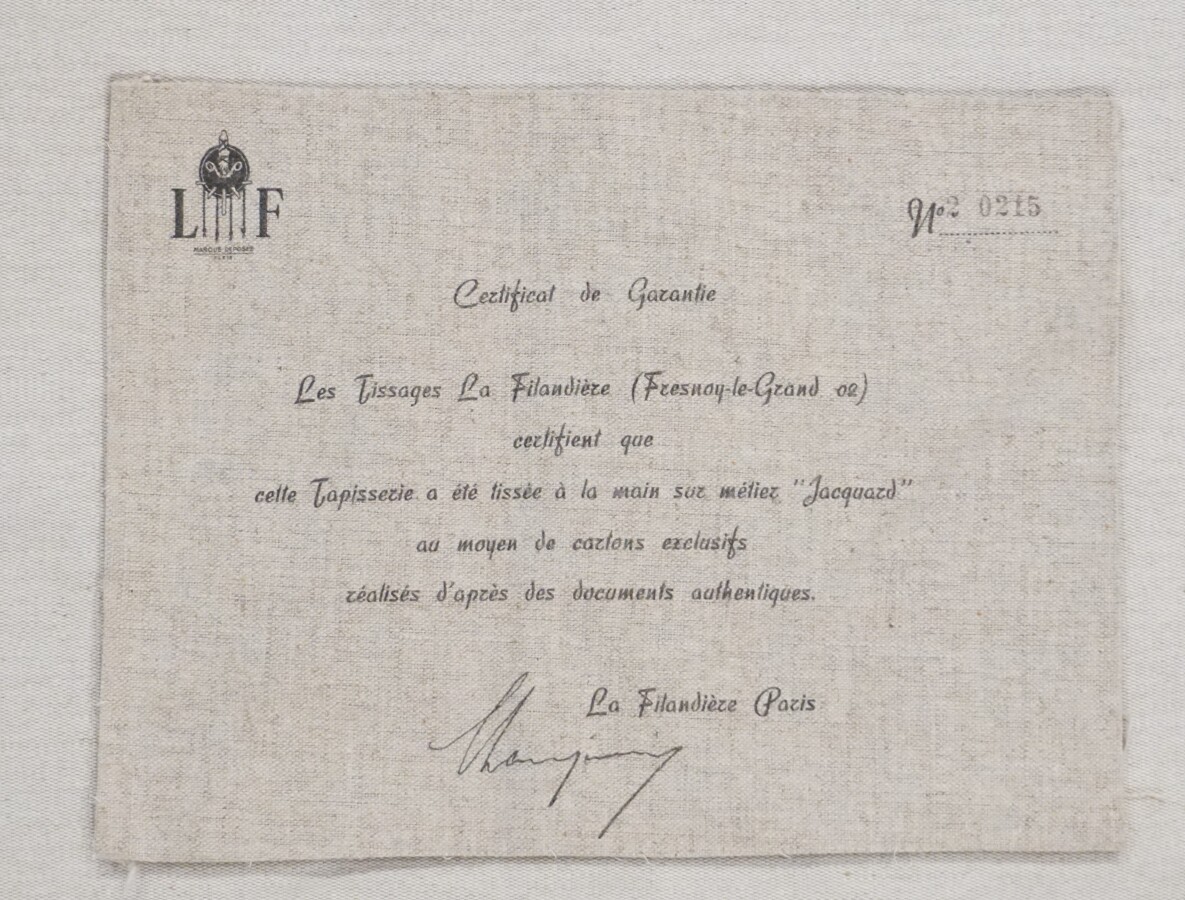 L F
MARQUE DEPOSEE
PARIS
No 2 0215
Certificat de Garantie
Les Tissages La Filandière (Fresnoy-le-Grand 02)
certifient que
cette Tapisserie a été tissée à la main sur métier "Jacquard"
au moyen de cartons exclusifs
réalisés d'après des documents authentiques.
La Filandière Paris